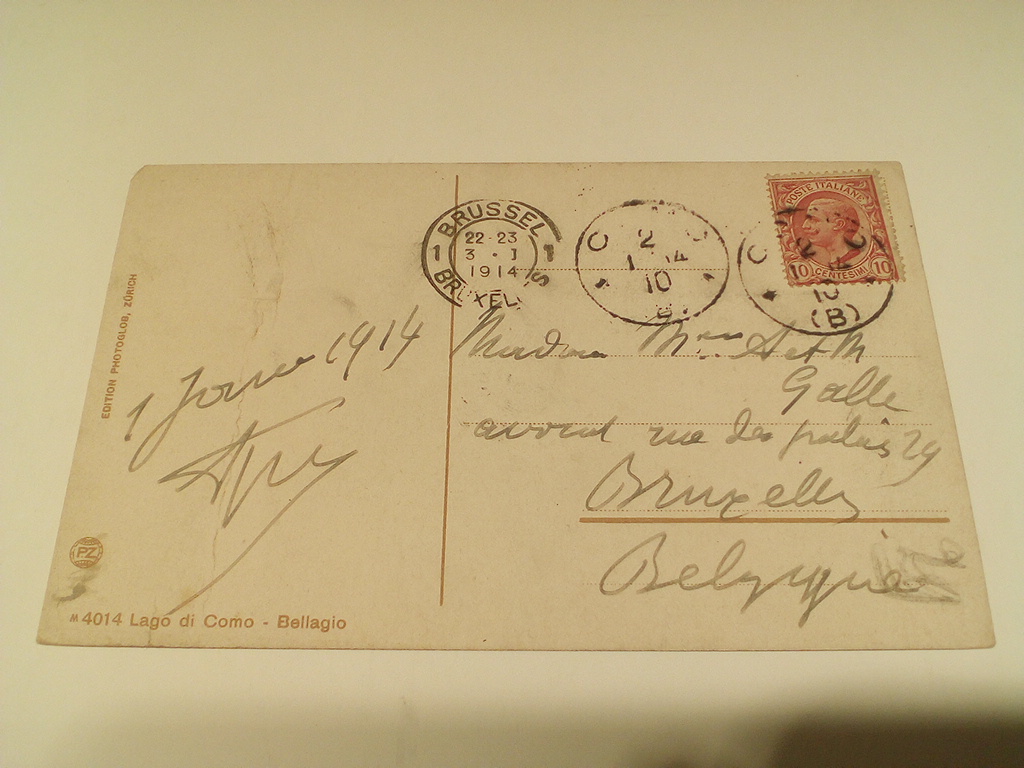 EDITION PHOTOGLOB, ZÜRICH
1 1914
PZ
M 4014 Lago di Como - Bellagio
BRUSSEL
1 22-23 1
3 · I
1914
BRUXELLES
2
1 14
10
B
POSTE ITALIANE
10 CENTESIMI 10
2
10
(B)
Madame Mme A et M
Galle
avocat rue des palais 29
Bruxelles
Belgique